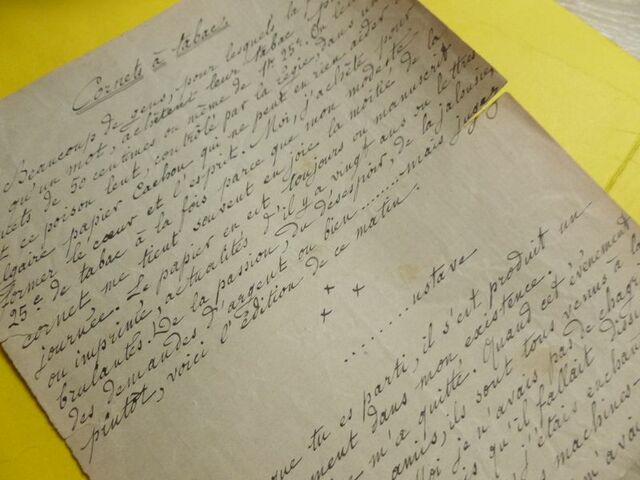 Cornets à tabac
Beaucoup de gens, pour lesquels la p
qu'un mot, achètent leur tabac
nets de 50 centimes ou même de 1fr 25c. Ou
ce poison lent, contrôlé par la régie, dans
lgaire papier Cachou qui ne peut en rien aider
former le cœur et l'esprit. Moi, j'achète pour
25c de tabac à la fois parce que mon modeste
cornet me tient souvent en joie la moitié de la
journée. Le papier en est toujours ou manuscrit
ou imprimé, actualités d'il y a vingt ans ou lettres
brulantes. De la passion, du désespoir, de la jalousie,
des demandes d'argent ou bien ........ mais jugez
plutôt, voici l'édition de ce matin.
.......... ustave
que tu es parti, il s'est produit un
ment dans mon existence.
m'a quitté. Quand cet événement
amis, ils sont tous venus à la
oi je n'avais pas de chagr
is qu'il fallait dissi
j'étais enchan
machines
n'ava